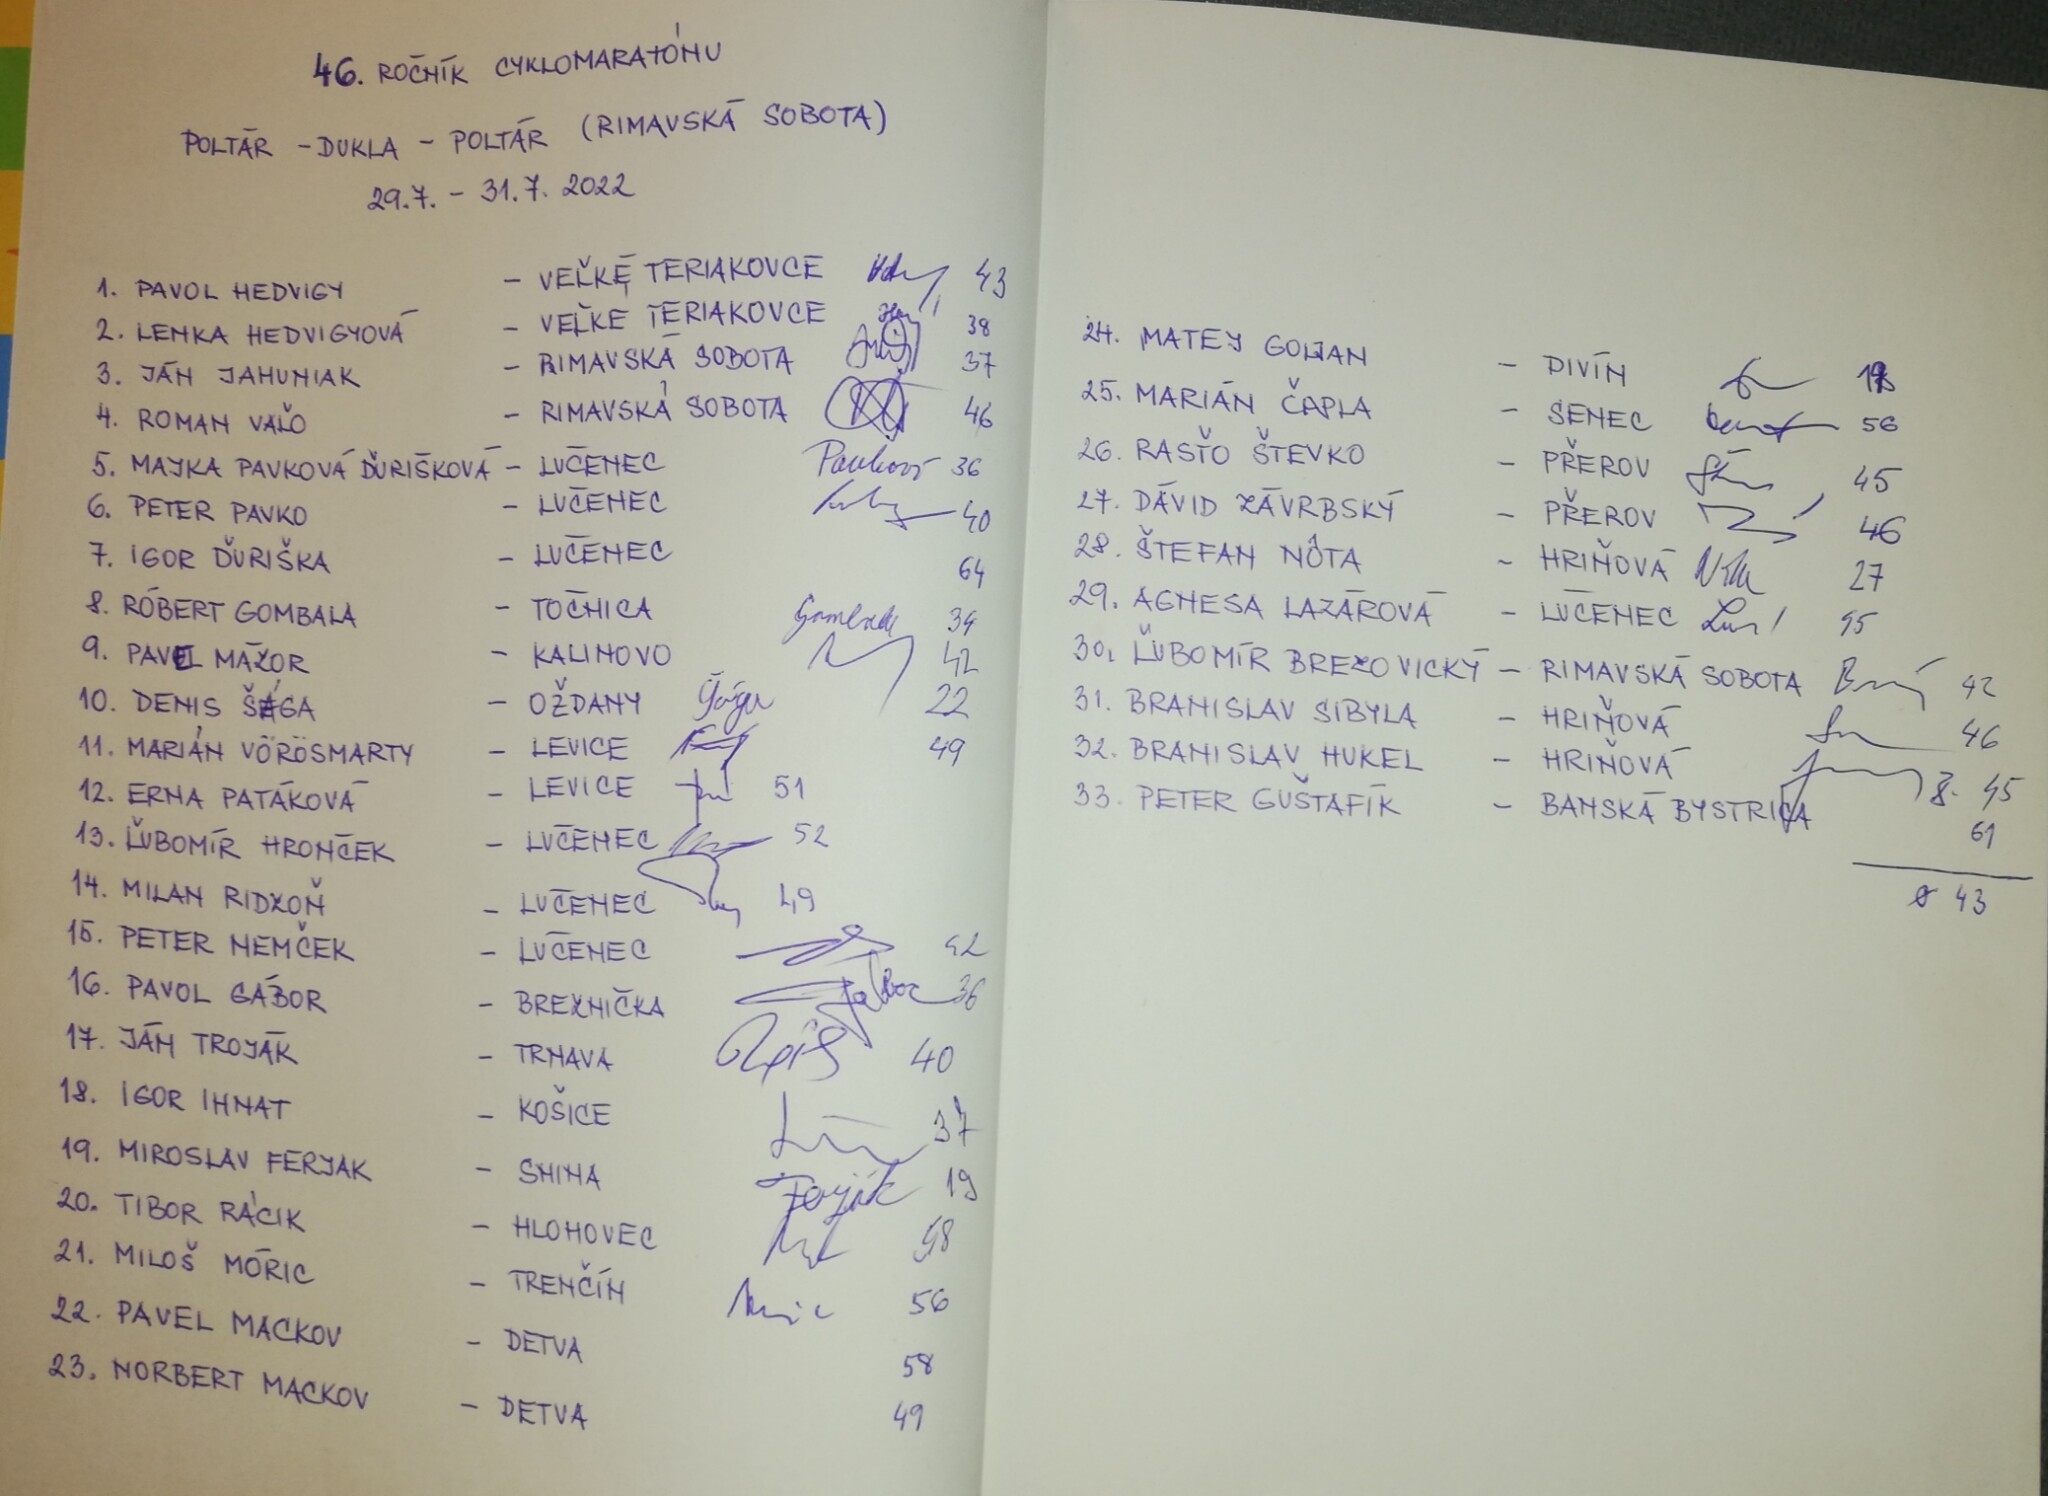 46. ROČNÍK CYKLOMARATÓNU
POLTÁR - DUKLA - POLTÁR (RIMAVSKÁ SOBOTA)
29.7. - 31.7. 2022
1. PAVOL HEDVIGY - VEĽKÉ TERIAKOVCE 43
2. LENKA HEDVIGYOVÁ - VEĽKÉ TERIAKOVCE 38
3. JÁN JAHUNIAK - RIMAVSKÁ SOBOTA 37
4. ROMAN VAĽO - RIMAVSKÁ SOBOTA 46
5. MAJKA PAVKOVÁ ĎURIŠKOVÁ - LUČENEC Pavková 36
6. PETER PAVKO - LUČENEC 40
7. IGOR ĎURIŠKA - LUČENEC 64
8. RÓBERT GOMBALA - TOČNICA Gombala 34
9. PAVEL MÁZOR - KALINOVO 42
10. DENIS ŠÁGA - OŽDANY Šága 22
11. MARIÁN VÖRÖSMARTY - LEVICE 49
12. ERNA PATÁKOVÁ - LEVICE 51
13. ĽUBOMÍR HRONČEK - LUČENEC 52
14. MILAN RIDZOŇ - LUČENEC 49
15. PETER NEMČEK - LUČENEC 42
16. PAVOL GÁBOR - BREZNIČKA Gábor 36
17. JÁN TROJÁK - TRNAVA 40
18. IGOR IHNAT - KOŠICE 37
19. MIROSLAV FERJAK - SNINA Ferják 19
20. TIBOR RÁCIK - HLOHOVEC 58
21. MILOŠ MÓRIC - TRENČÍN 56
22. PAVEL MACKOV - DETVA 58
23. NORBERT MACKOV - DETVA 49
24. MATEJ GOLIAN - DIVÍN
25. MARIÁN ČAPLA - SENEC 56
26. RASŤO ŠTEVKO - PŘEROV 45
27. DÁVID ZÁVRBSKÝ - PŘEROV 46
28. ŠTEFAN NÔTA - HRIŇOVÁ 27
29. AGNESA LAZÁROVÁ - LUČENEC
30. ĽUBOMÍR BREZOVICKÝ - RIMAVSKÁ SOBOTA 42
31. BRANISLAV SIBYLA - HRIŇOVÁ 46
32. BRANISLAV HUKEL - HRIŇOVÁ 45
33. PETER GUŠTAFÍK - BANSKÁ BYSTRICA 61
ø 43